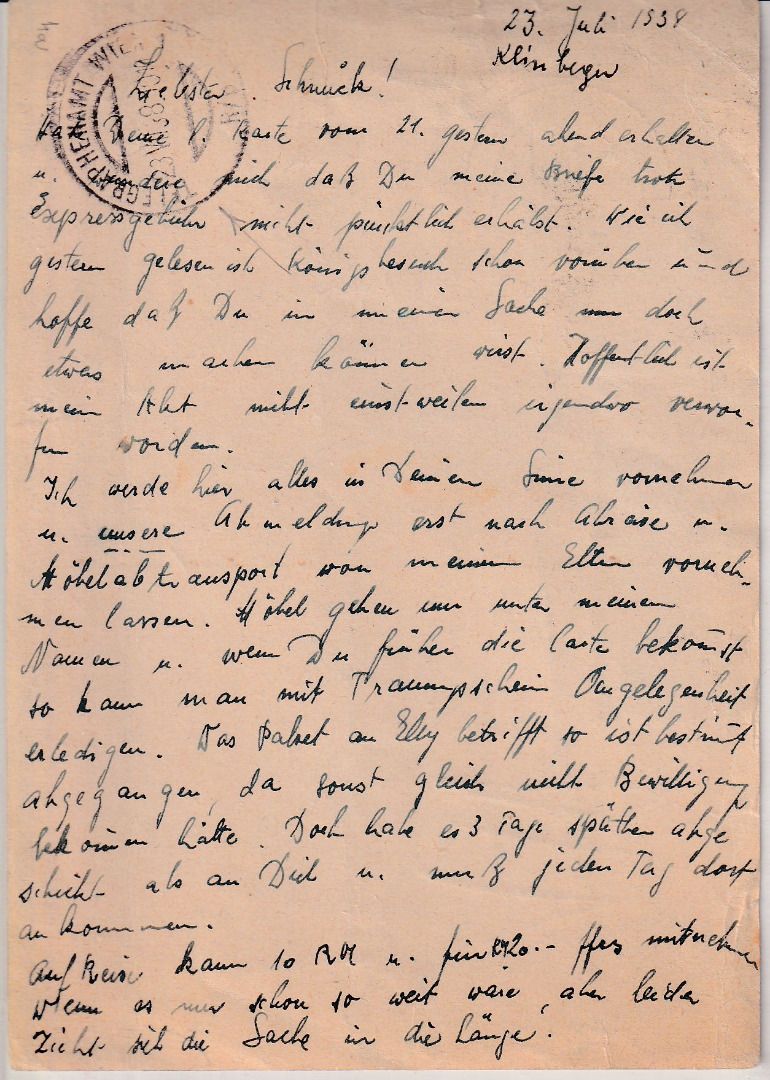 23. Juli 1938
Klosterbeger
Liebster Schnuck!
TELEGRAPHENAMT WIEN
Habe Deine l. Karte vom 21. gestern abend erhalten
u. wundere mich daß Du meine Briefe trotz
Expressgebühr nicht pünktlich erhälst. Wie ich
gestern gelesen ist Königsbesuch schon vorüber und
hoffe daß Du in meiner Sache nun doch
etwas machen können wirst. Hoffentlich ist
mein Akt nicht einstweilen irgendwo verwor-
fen worden.
Ich werde hier alles in Deinem Sinne vornehmen
u. unsere Abmeldung erst nach Abreise u.
Möbelabtransport von meinen Eltern vorneh-
men lassen. Möbel gehen nur unter meinem
Namen u. wenn Du früher die Carte bekomst
so kann man mit Trauungschein Angelegenheit
erledigen. Das Paket an Elly betrifft so ist bestimt
abgegangen, da sonst gleich nicht Bewilligung
bekomen hätte. Doch habe es 3 Tage später abge
schickt als an Dich u. muß jeden Tag dort
ankommen.
Auf Reise kann 10 RM u. für RM 20.- ffrs mitnehmen
Wenn es nur schon so weit wäre, aber leider
zieht sich die Sache in die Länge.